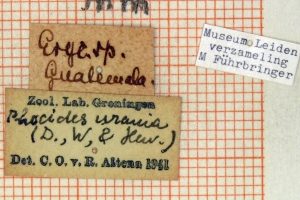 Museum Leiden
verzameling
M Fuhrbringer
Guatemala.
Zool. Lab. Groningen
Phocides urania
(D., W, & Hew.)
Det. C. O. v. R. Altena 1941